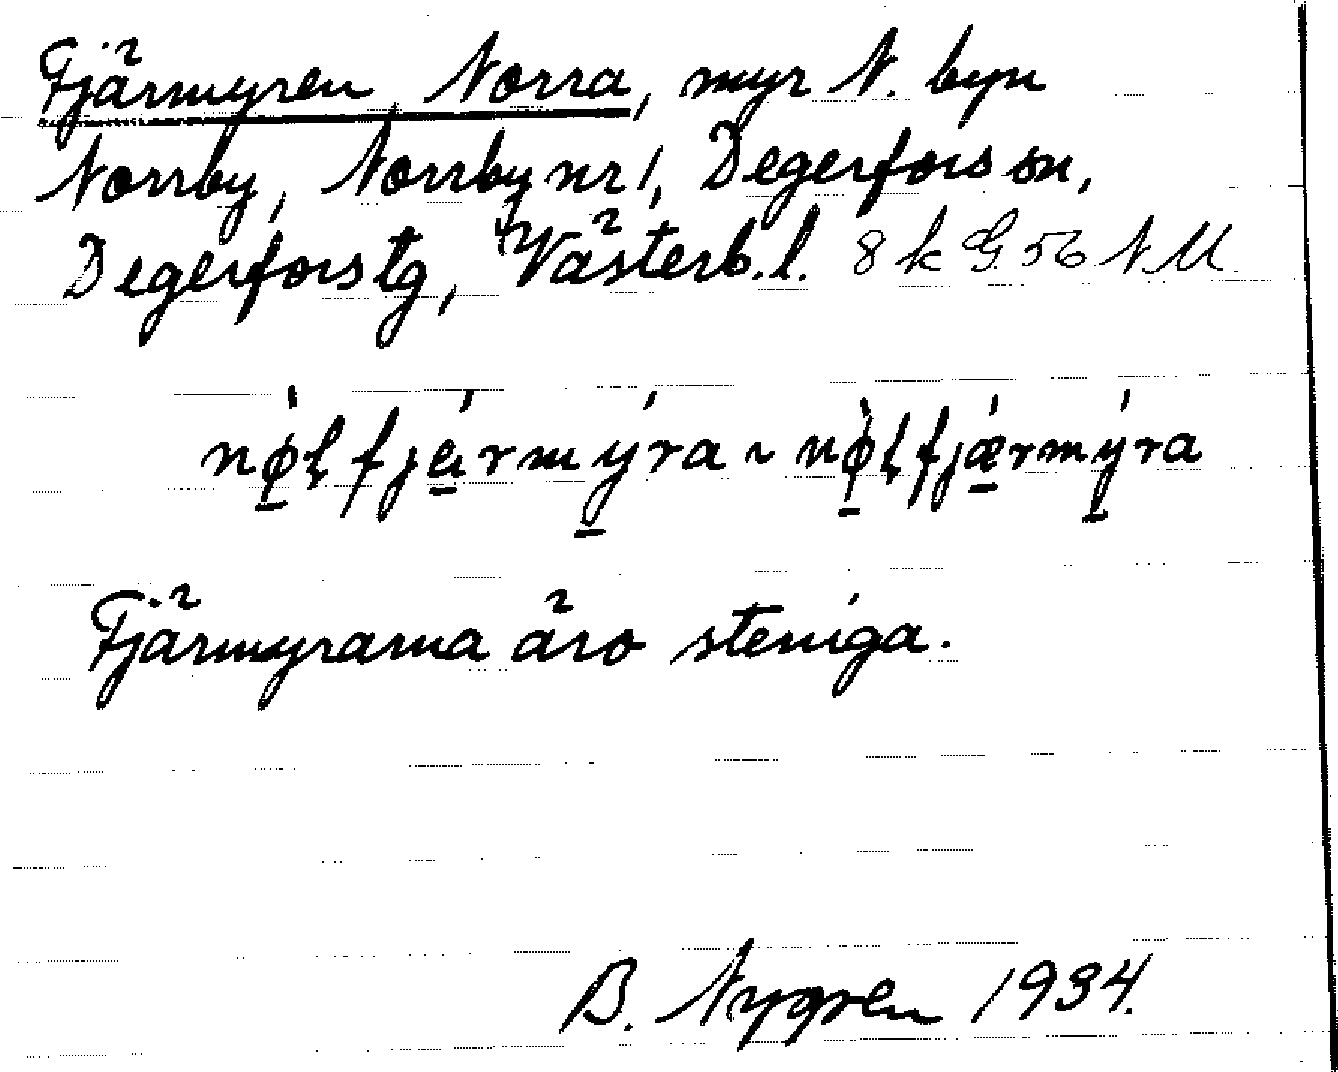 Fjärmyren, Norra, myr N. byn
Norrby, Norrby nr 1, Degerfors sn,
Degerfors tg, Västerb. l. 8 k G. 56 N. M.
fjärmýra ~ fjǽrmýra
Fjärmyrarna äro steniga.
B. Nygren 1934.